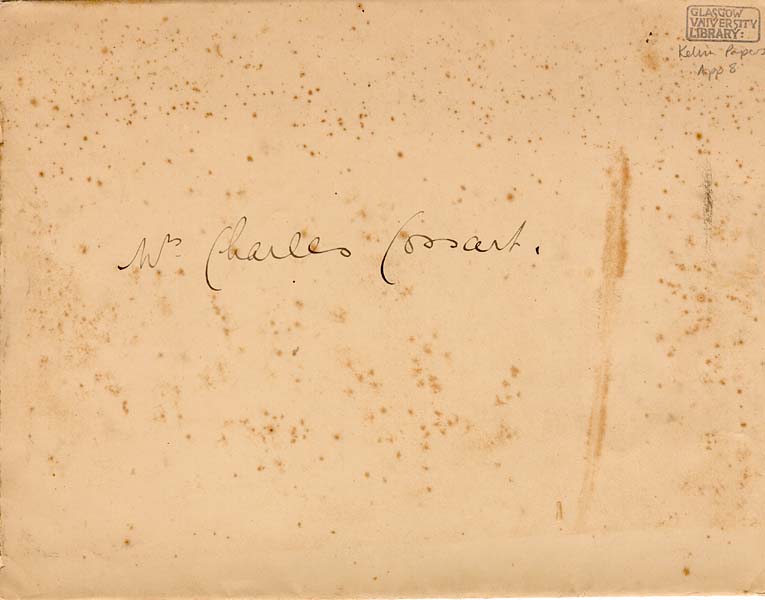 GLASGOW
UNIVERSITY
LIBRARY:
Kelvin Papers
App 8
Mrs Charles Cossart.